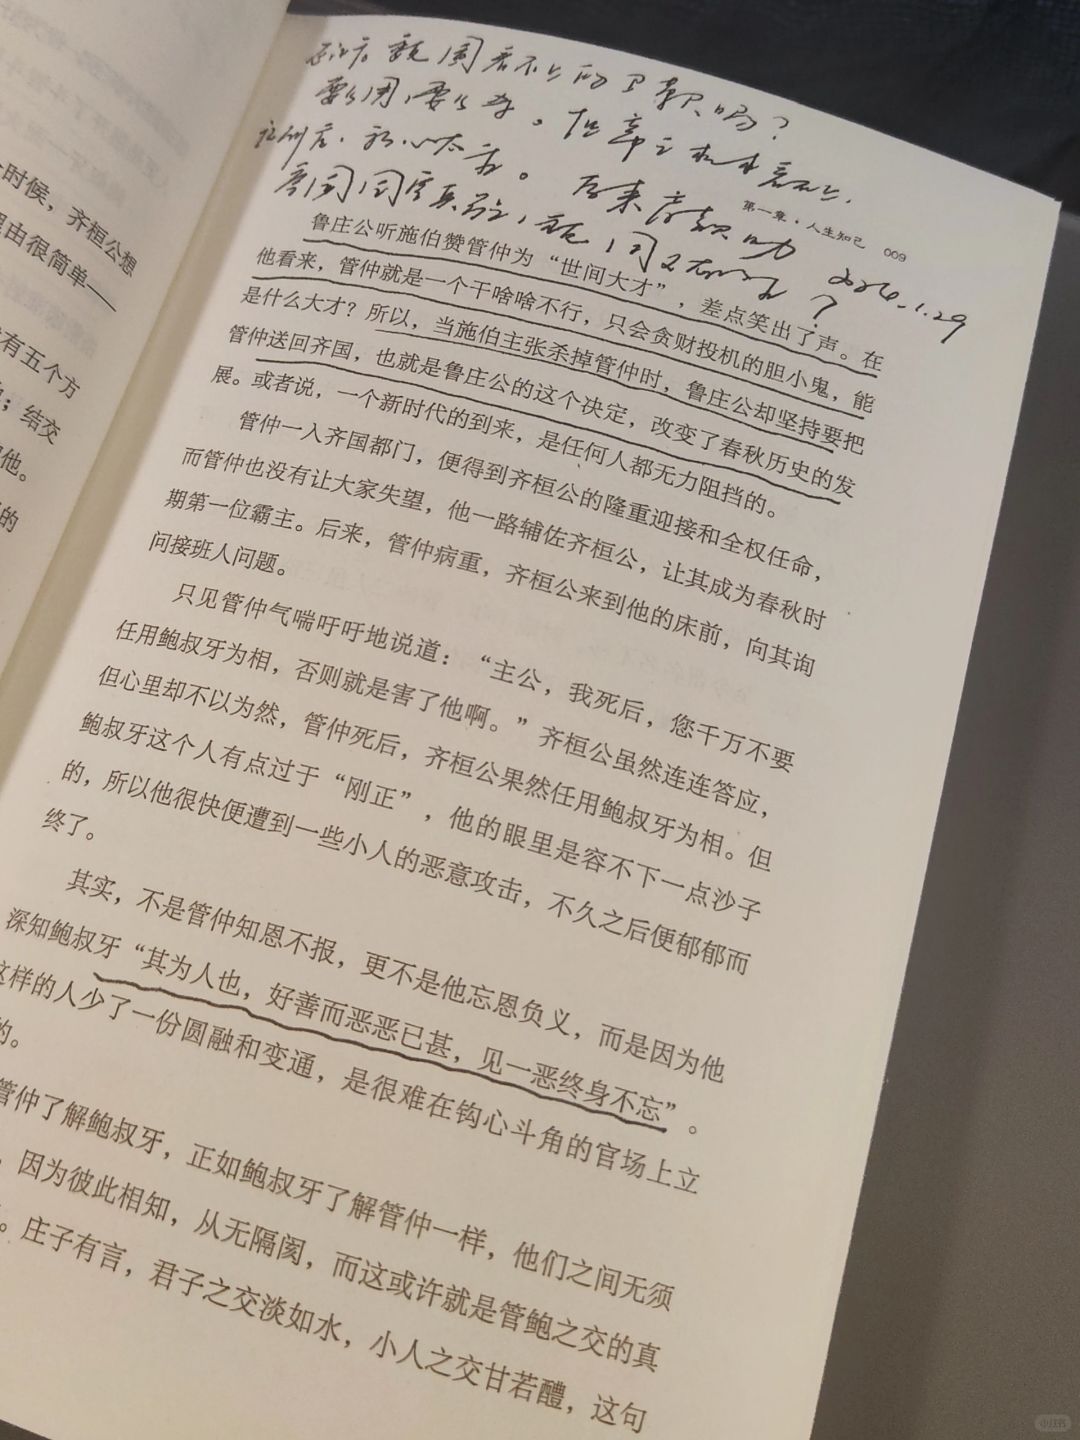 要么用，要么杀。
2026.1.29
第一章·人生知己 009
鲁庄公听施伯赞管仲为“世间大才”，差点笑出了声。在
他看来，管仲就是一个干啥啥不行，只会贪财投机的胆小鬼，能
是什么大才？所以，当施伯主张杀掉管仲时，鲁庄公却坚持要把
管仲送回齐国，也就是鲁庄公的这个决定，改变了春秋历史的发
展。或者说，一个新时代的到来，是任何人都无力阻挡的。
管仲一入齐国都门，便得到齐桓公的隆重迎接和全权任命，
而管仲也没有让大家失望，他一路辅佐齐桓公，让其成为春秋时
期第一位霸主。后来，管仲病重，齐桓公来到他的床前，向其询
问接班人问题。
只见管仲气喘吁吁地说道：“主公，我死后，您千万不要
任用鲍叔牙为相，否则就是害了他啊。”齐桓公虽然连连答应，
但心里却不以为然，管仲死后，齐桓公果然任用鲍叔牙为相。但
鲍叔牙这个人有点过于“刚正”，他的眼里是容不下一点沙子
的，所以他很快便遭到一些小人的恶意攻击，不久之后便郁郁而
终了。
其实，不是管仲知恩不报，更不是他忘恩负义，而是因为他
深知鲍叔牙“其为人也，好善而恶恶已甚，见一恶终身不忘”。
这样的人少了一份圆融和变通，是很难在钩心斗角的官场上立
的。
管仲了解鲍叔牙，正如鲍叔牙了解管仲一样，他们之间无须
，因为彼此相知，从无隔阂，而这或许就是管鲍之交的真
。庄子有言，君子之交淡如水，小人之交甘若醴，这句
时候，齐桓公想
理由很简单——
有五个方
；结交
他。
的
小红书